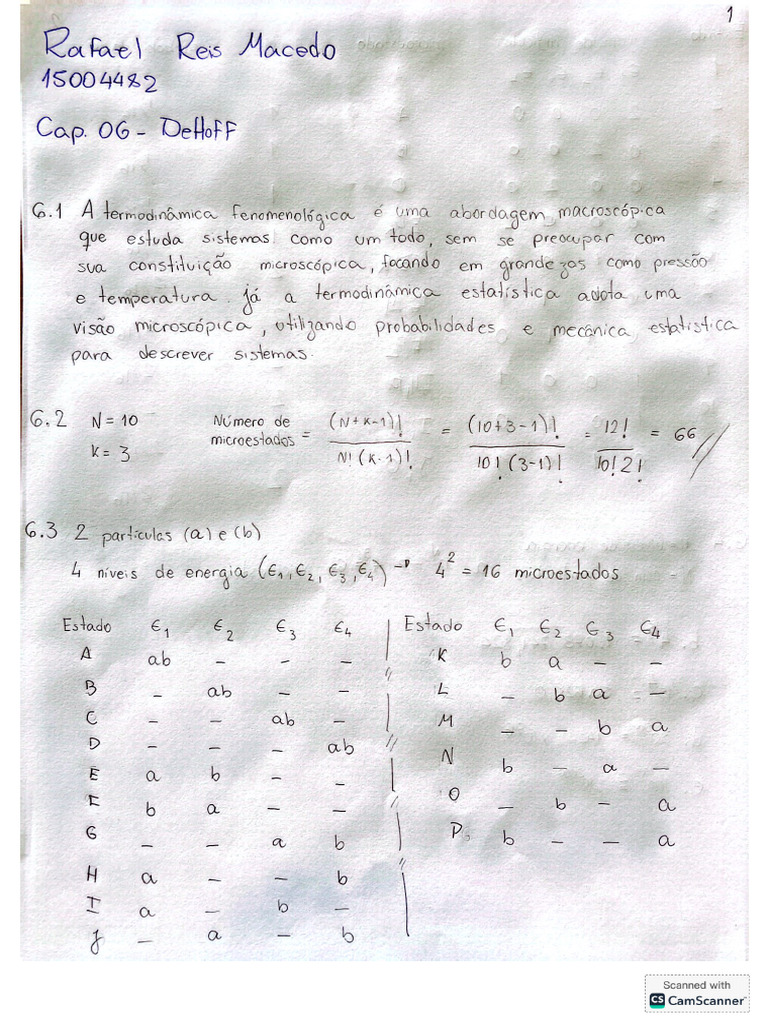 1
Rafael Reis Macedo
15004482
Cap. 06 - DeHoff
6.1 A termodinâmica fenomenológica é uma abordagem macroscópica
que estuda sistemas como um todo, sem se preocupar com
sua constituição microscópica, focando em grandezas como pressão
e temperatura. já a termodinâmica estatística adota uma
visão microscópica, utilizando probabilidades e mecânica estatística
para descrever sistemas.
6.2 N = 10
K = 3
Número de microestados = (N+K-1)! / N!(K-1)! = (10+3-1)! / 10!(3-1)! = 12! / 10!2! = 66 //
6.3 2 partículas (a) e (b)
4 níveis de energia (ϵ1, ϵ2, ϵ3, ϵ4) → 4² = 16 microestados
Estado ϵ1 ϵ2 ϵ3 ϵ4
A ab - - -
B - ab - -
C - - ab -
D - - - ab
E a b - -
F b a - -
G - - a b
H a - - b
I a - b -
J - a - b
Estado ϵ1 ϵ2 ϵ3 ϵ4
K b a - -
L - b a -
M - - b a
N b - a -
O - b - a
P b - - a
Scanned with
CS CamScanner